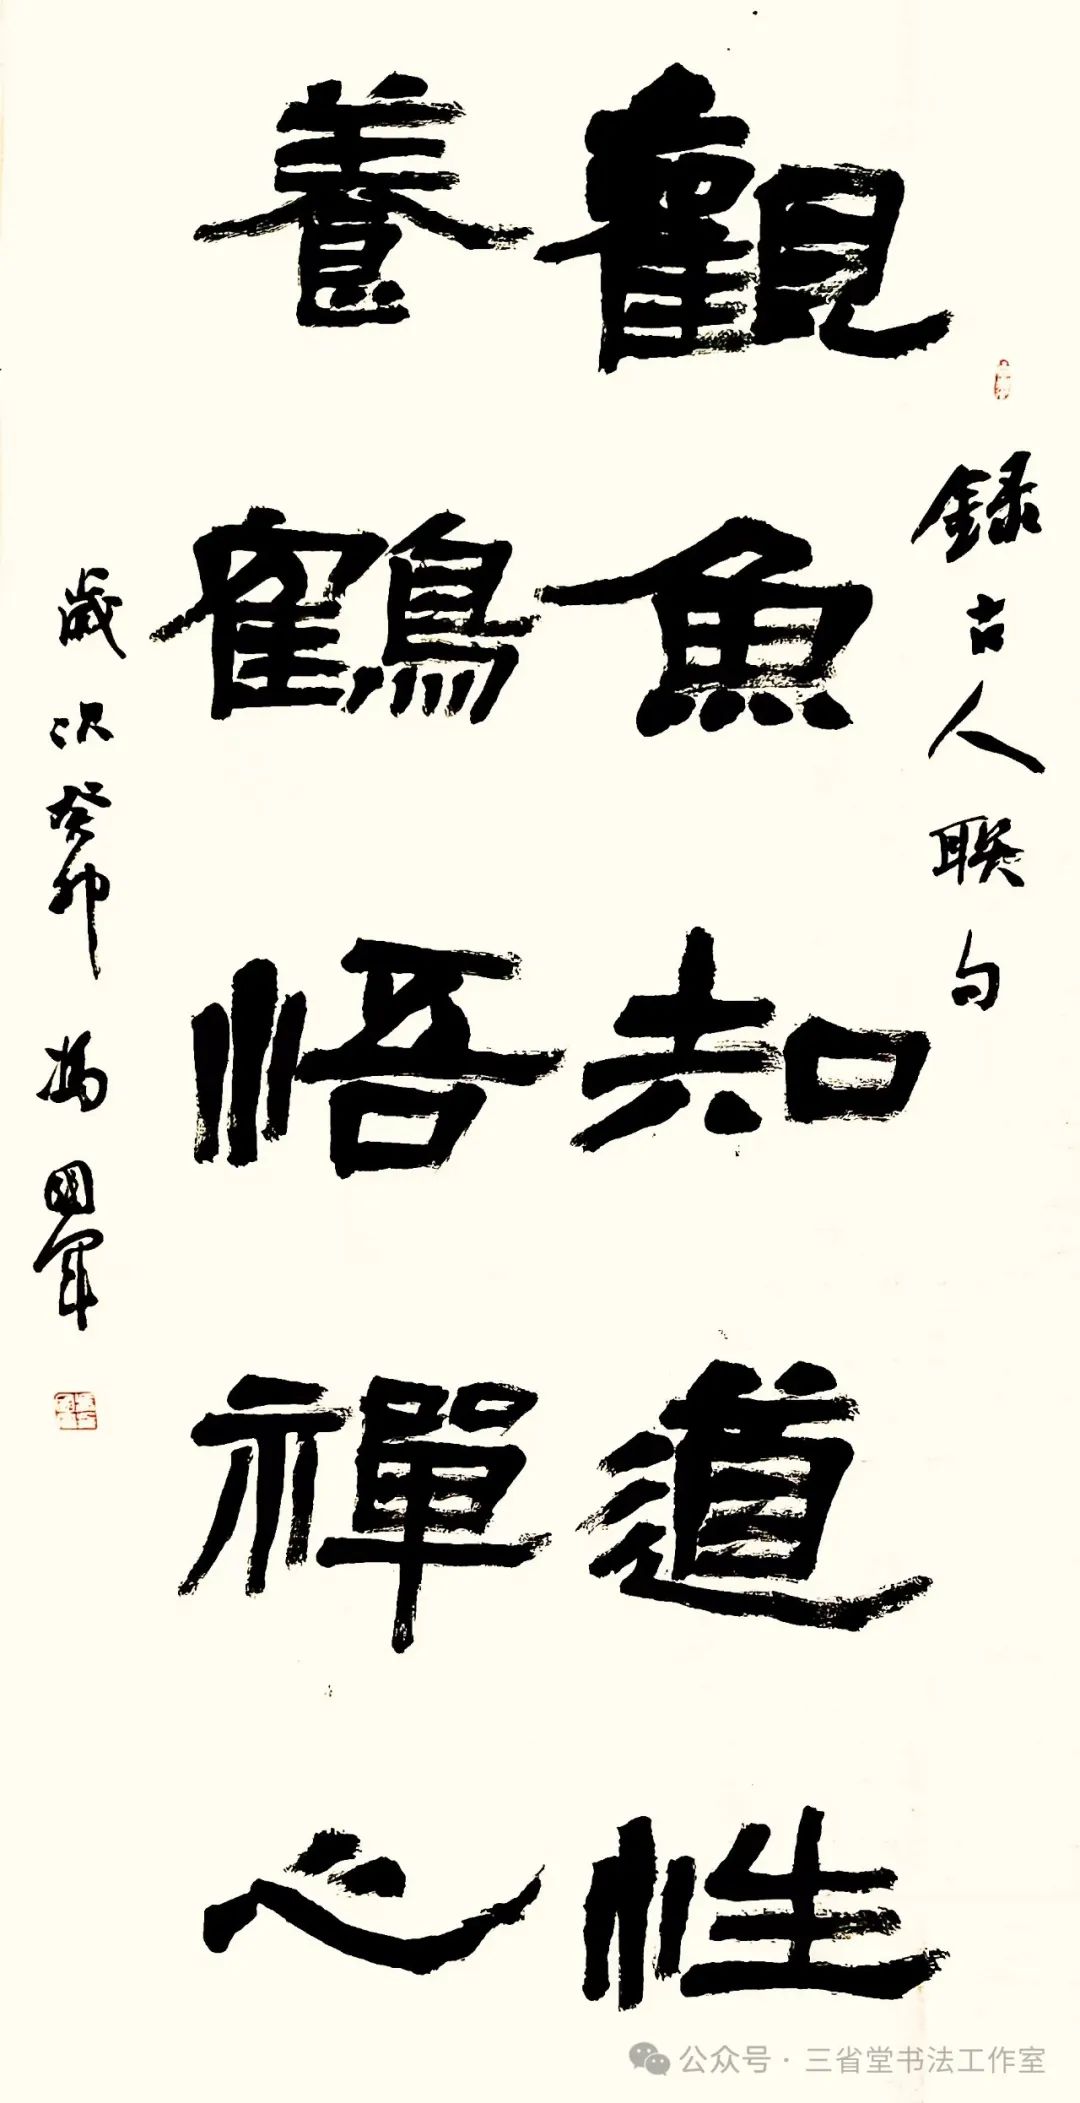 錄古人联句
觀魚知道性
養鶴悟禪心
歲次癸卯 楊國軍
公众号·三省堂书法工作室